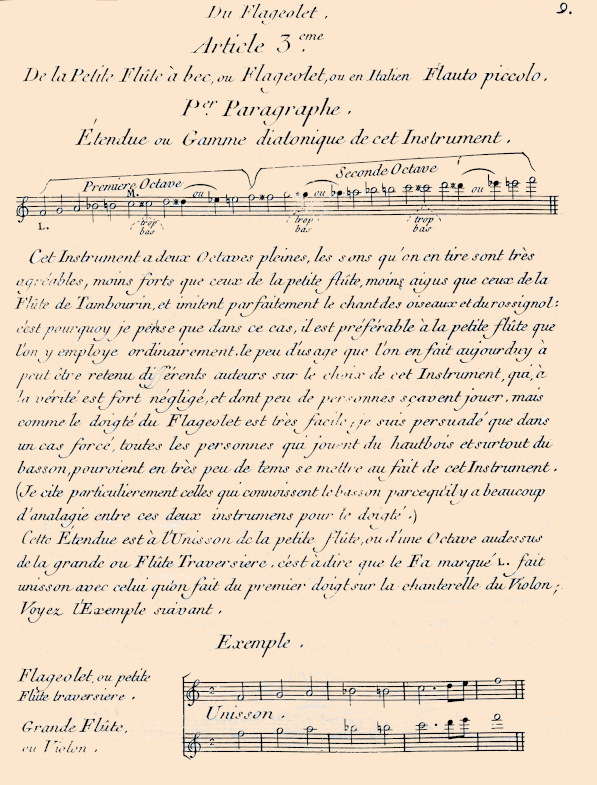 Du Flageolet.
9.
Article 3.eme
De la Petite Flûte à bec, ou Flageolet, ou en Italien Flauto piccolo.
Per Paragraphe.
Étendue ou Gamme diatonique de cet Instrument.
Premiere Octave
Seconde Octave
M.
ou
ou
ou
L.
trop bas
trop bas
trop bas
Cet Instrument a deux Octaves pleines, les sons qu'on en tire sont très
agréables, moins forts que ceux de la petite flûte, moins aigus que ceux de la
Flûte de Tambourin, et imitent parfaitement le chant des oiseaux et du rossignol:
c'est pourquoy je pense que dans ce cas, il est préférable à la petite flûte que
l'on y employe ordinairement. le peu d'usage que l'on en fait aujourduy à
peut être retenu différents auteurs sur le choix de cet Instrument, qui, à
la vérité est fort négligé, et dont peu de personnes sçavent jouer, mais
comme le doigté du Flageolet est très facile; je suis persuadé que dans
un cas forcé, toutes les personnes qui jouent du hautbois et surtout du
basson, pouroient en très peu de tems se mettre au fait de cet Instrument.
(Je cite particulierement celles qui connoissent le basson parcequ'il y a beaucoup
d'analagie entre ces deux instrumens pour le doigté.)
Cette Étendue est à l'Unisson de la petite flûte, ou d'une Octave audessus
de la grande ou Flûte Traversiere. c'est à dire que le Fa marqué L. fait
unisson avec celui qu'on fait du premier doigt sur la chanterelle du Violon;
Voyez l'Exemple suivant.
Exemple.
Flageolet, ou petite
Flûte traversiere.
Unisson.
Grande Flûte,
ou Violon.